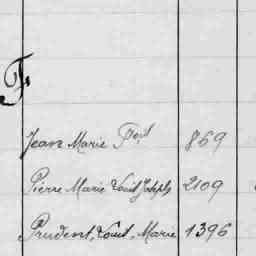 F
Jean Marie 869
Pierre Marie Louis Joseph 2109
Prudent, Louis, Marie 1396